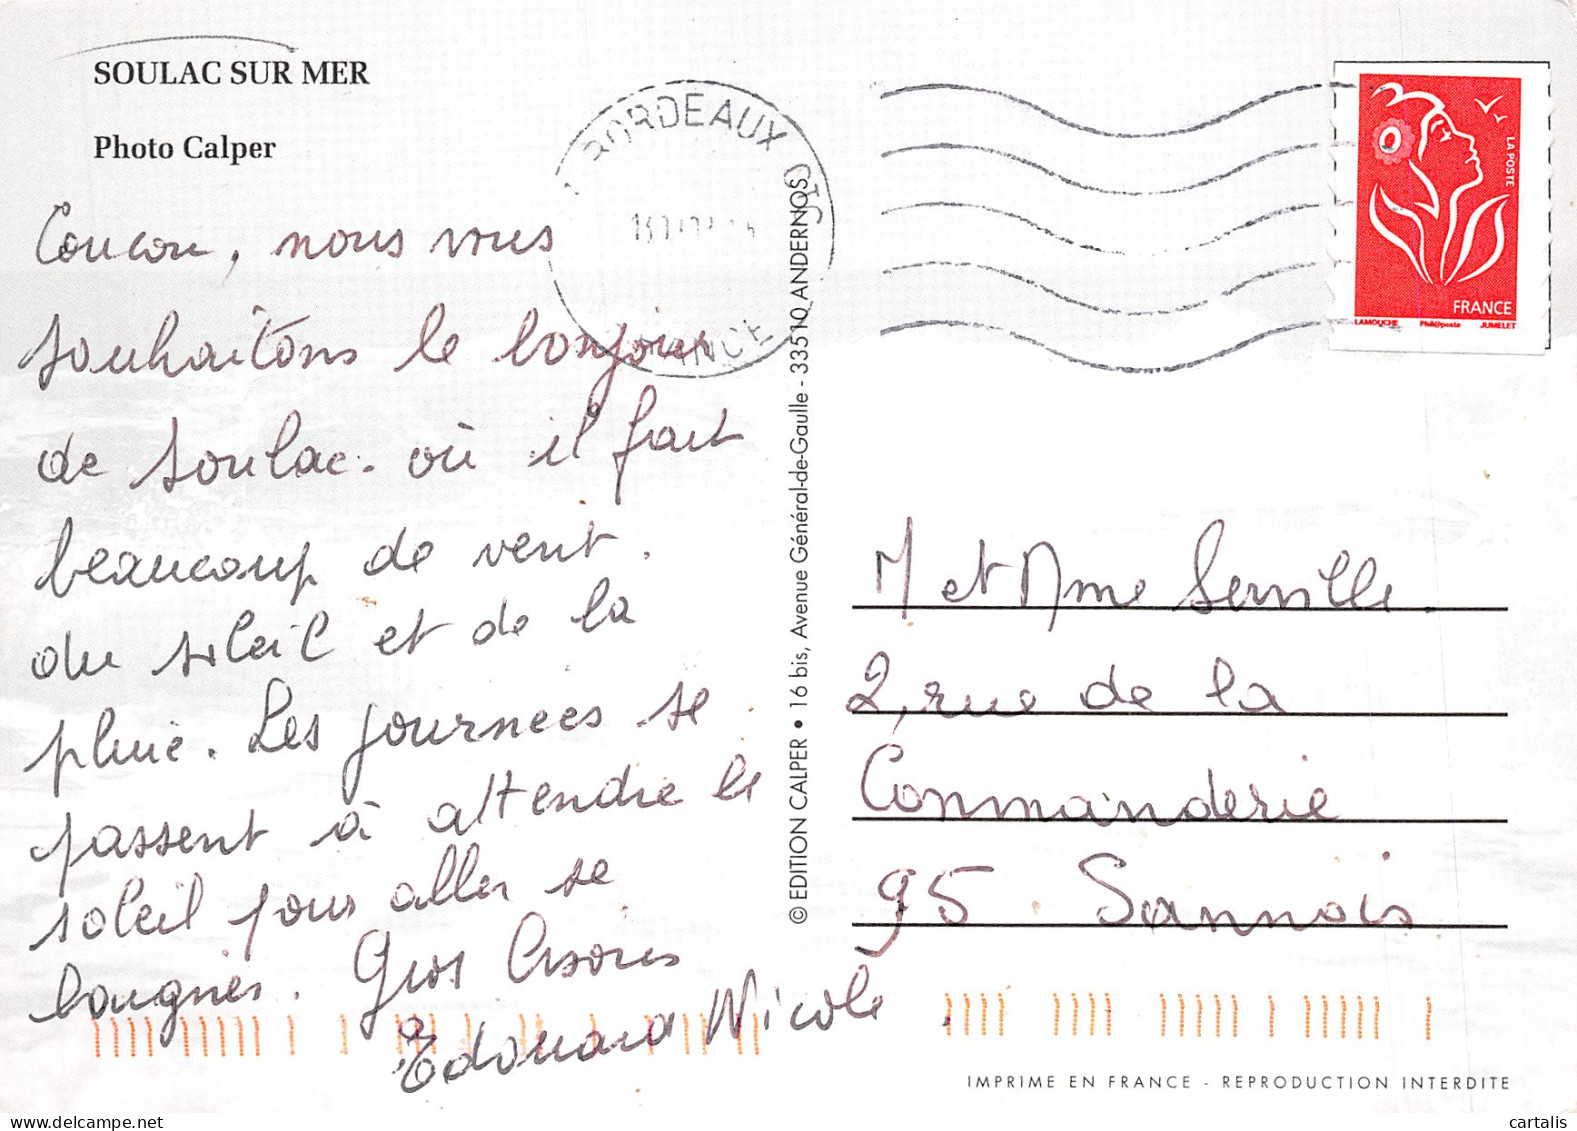 SOULAC SUR MER
Photo Calper
Coucou, nous vous
souhaitons le bonjour
de Soulac. où il fait
beaucoup de vent.
du soleil et de la
pluie. Les journées se
passent à attendre le
soleil pour aller se
baigner. Gros Bisous
Edouard Nicole
BORDEAUX
© EDITION CALPER • 16 bis, Avenue Général-de-Gaulle - 33510 ANDERNOS
LA POSTE
FRANCE
LAMOUCHE Phil@poste JUMELET
M et Mme Serville.
2, rue de la
Commanderie
95 Sannois
IMPRIME EN FRANCE - REPRODUCTION INTERDITE
cartalis